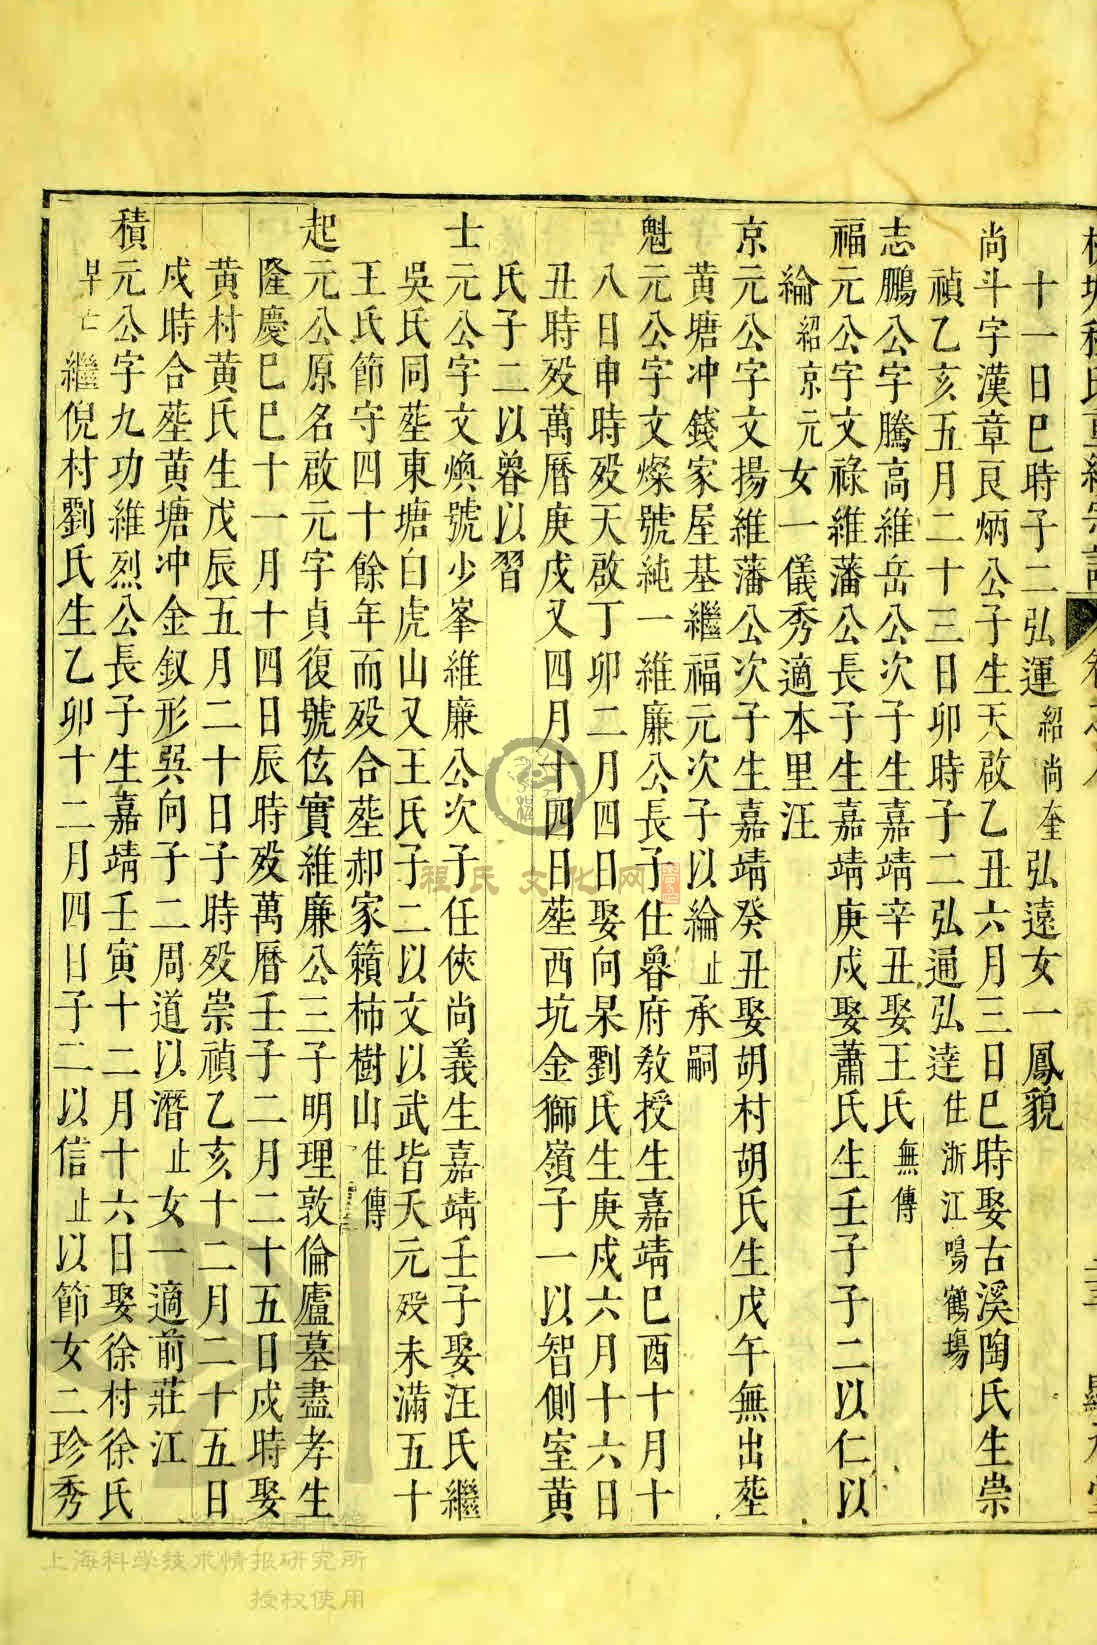 十一日巳時子二弘運紹尚奎弘遠女一鳳貌
尚斗字漢章良炳公子生天啟乙丑六月三日巳時娶古溪陶氏生崇
禎乙亥五月二十三日卯時子二弘通弘達住浙江鳴鶴塲
志鵬公字騰高維岳公次子生嘉靖辛丑娶王氏無傳
福元公字文祿維藩公長子生嘉靖庚戍娶蕭氏生壬子子二以仁以
綸紹京元女一儀秀適本里汪
京元公字文揚維藩公次子生嘉靖癸丑娶胡村胡氏生戊午無出塟
黄塘冲錢家屋基繼福元次子以綸止承嗣
魁元公字文燦號純一維廉公長子仕魯府教授生嘉靖巳酉十月十
八日申時歿天啟丁卯二月四日娶向杲劉氏生庚戍六月十六日
丑時歿萬曆庚戍又四月十四日塟西坑金獅嶺子一以智側室黄
氏子二以魯以習
士元公字文煥號少峯維廉公次子任俠尚義生嘉靖壬子娶汪氏繼
吳氏同塟東塘白虎山又王氏子二以文以武皆夭元歿未滿五十
王氏節守四十餘年而歿合塟郝家籟柿樹山住傳
起元公原名啟元字貞復號伭實維廉公三子明理敦倫廬墓盡孝生
隆慶巳巳十一月十四日辰時歿萬曆壬子二月二十五日戍時娶
黄村黄氏生戊辰五月二十日子時歿崇禎乙亥十二月二十五日
戍時合塟黄塘冲金釵形巽向子二周道以潛止女一適前莊江
積元公字九功維烈公長子生嘉靖壬寅十二月十六日娶徐村徐氏
早亡繼倪村劉氏生乙卯十二月四日子二以信止以節女二珍秀
程氏文化网
上海科学技术情报研究所
授权使用